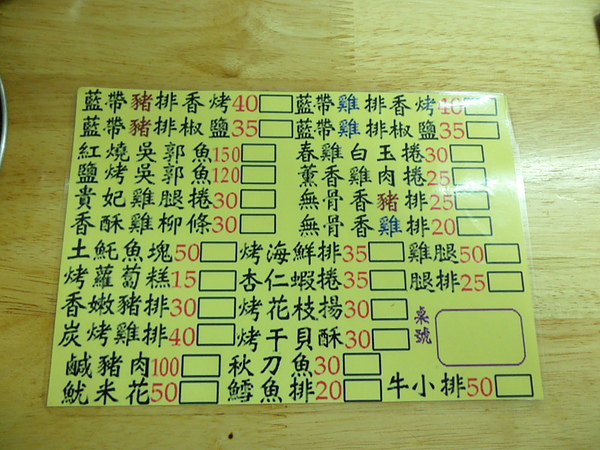 藍帶豬排香烤40 藍帶雞排香烤40
藍帶豬排椒鹽35 藍帶雞排椒鹽35
紅燒吳郭魚150 春雞白玉捲30
鹽烤吳郭魚120 薰香雞肉捲25
貴妃雞腿捲30 無骨香豬排25
香酥雞柳條30 無骨香雞排20
土魠魚塊50 烤海鮮排35 雞腿50
烤蘿蔔糕15 杏仁蝦捲35 腿排25
香嫩豬排30 烤花枝揚30
炭烤雞排40 烤干貝酥30
桌號
鹹豬肉100 秋刀魚30
魷米花50 鱈魚排20 牛小排50